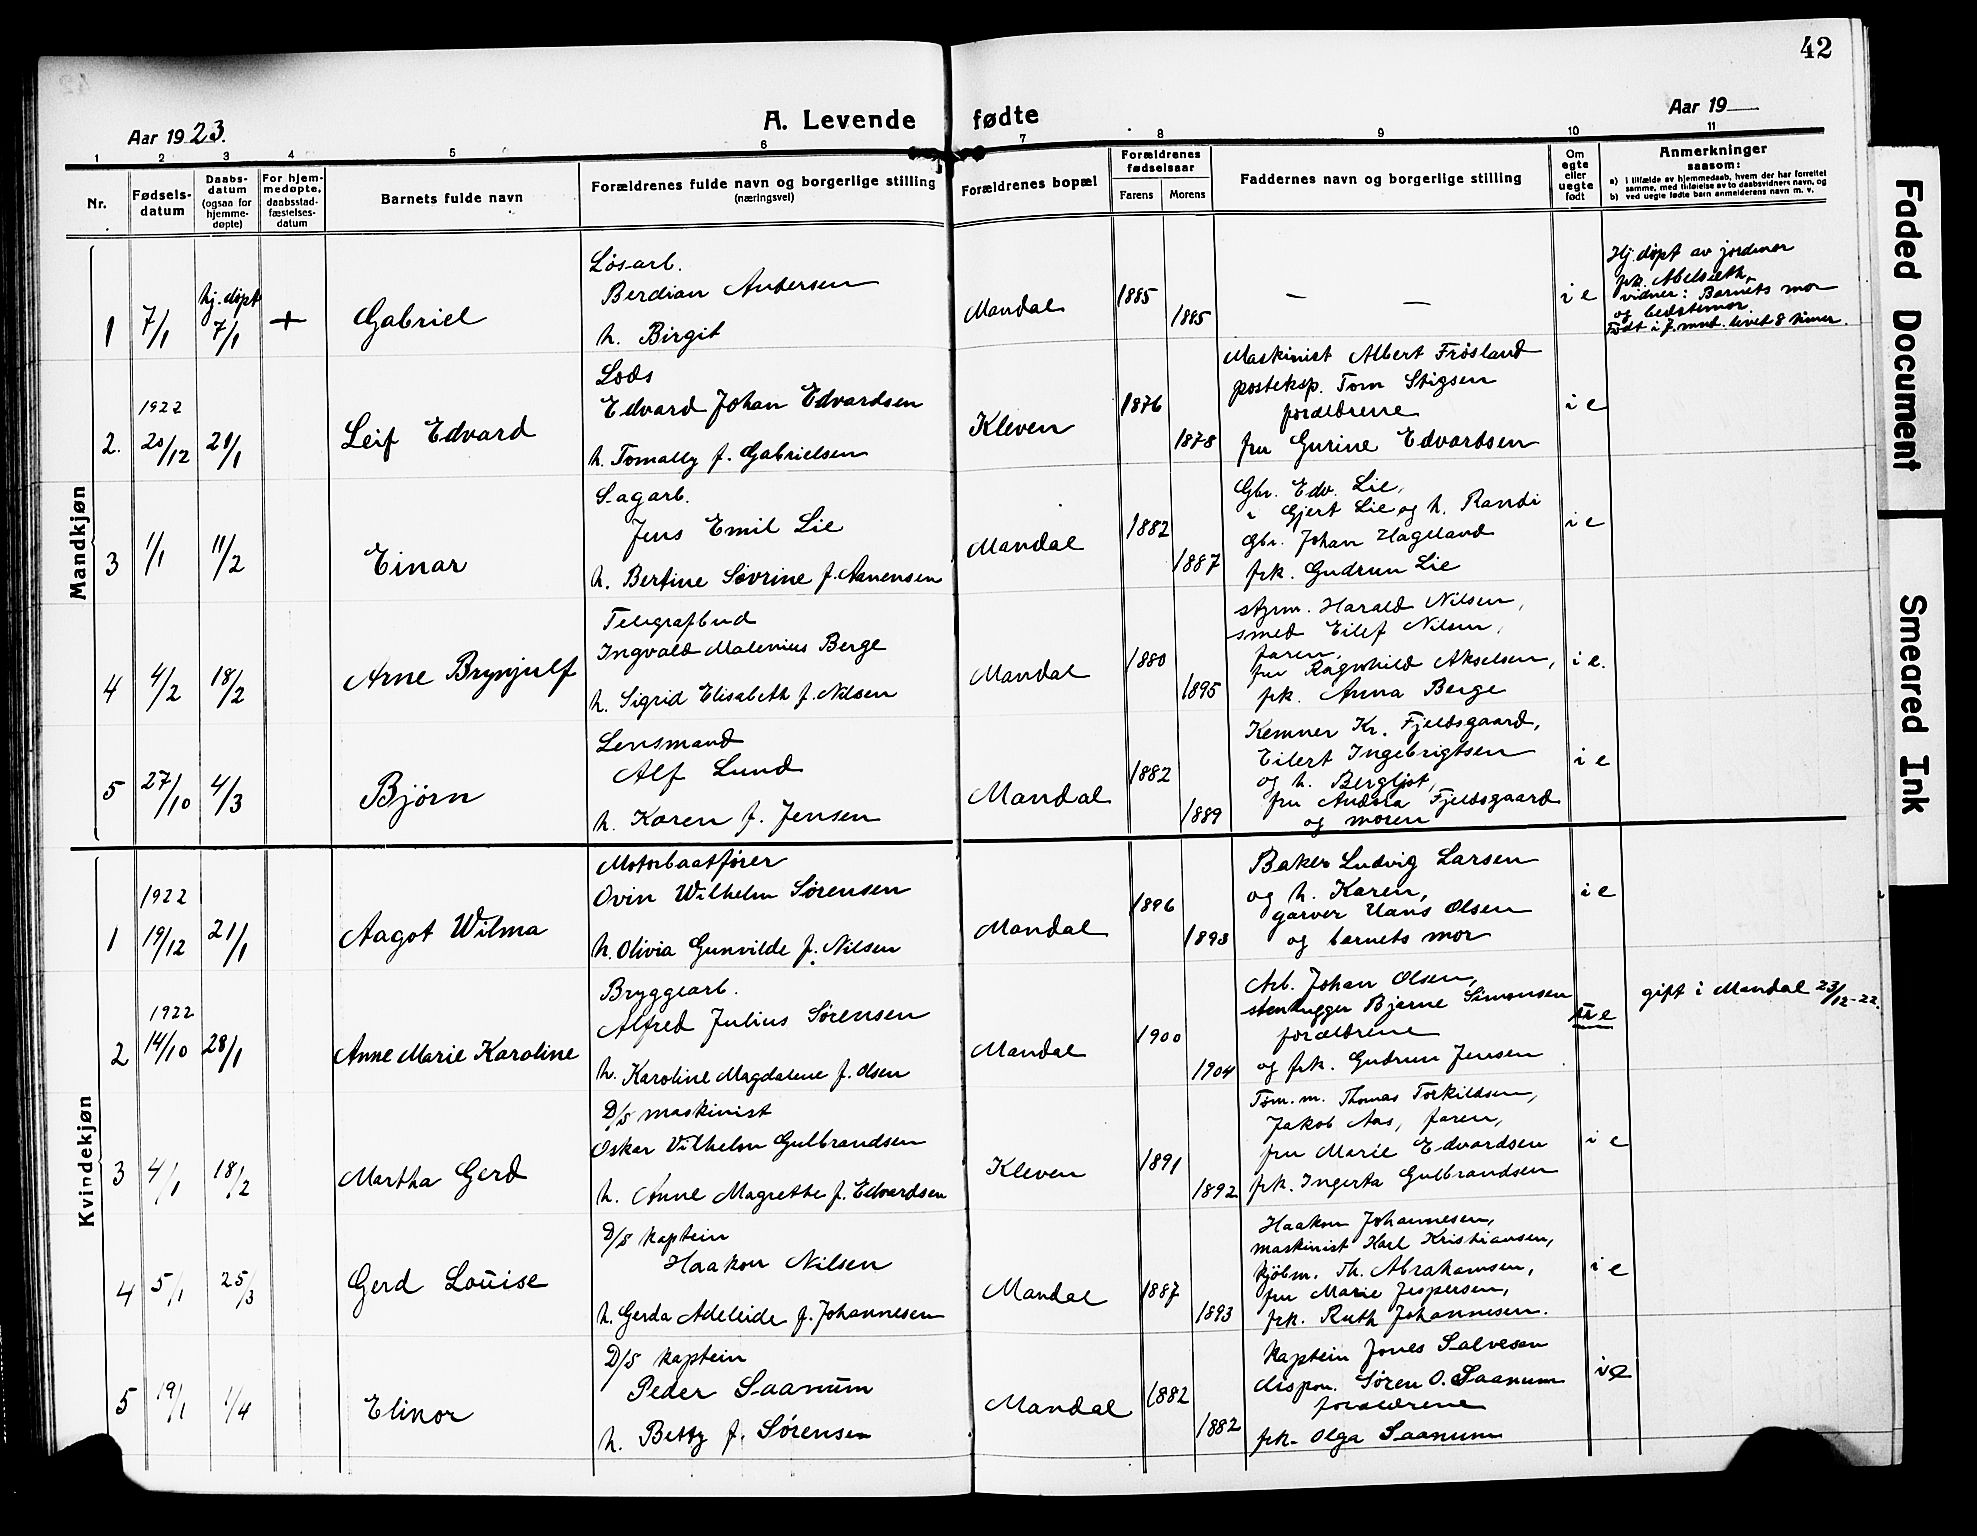 42
Aar 1923.
A. Levende fødte
Aar 19
1 2 3 4 5 6 7 8 9 10 11
Nr.
Fødsels-
datum
Daabs-
datum
(ogsaa for
hjemme-
døpte)
For hjem-
medøpte,
daabsstad-
fæstelses-
datum
Barnets fulde navn
Forældrenes fulde navn og borgerlige stilling
(næringsvei)
Forældrenes bopæl
Forældrenes
fødselsaar
Farens Morens
Faddernes navn og borgerlige stilling
Om
egte
eller
uegte
født
Anmerkninger
saasom:
a) i tilfælde av hjemmedaab, hvem der har forrettet
samme, med tilføielse av to daabsvidners navn, og
b) ved uegte fødte barn anmelderens navn m. v.
Mandkjøn
1 7/1 hj. døpt 7/1 + Gabriel
Løsarb.
Berdian Andersen
h. Birgit
Mandal 1885 1885 — — i e
Hj. døpt av jordmor
frk. Abelseth,
vidner: Barnets mor
og bedstemor
Født i 7. mnd. levet 8 timer.
2. 1922 20/12 21/1 Leif Edvard
Lods
Edvard Johan Edvardsen
h. Tomally f. Gabrielsen
Kleven 1876 1878
Maskinist Albert Frøsland
posteksp. Tom Stigsen
forældrene
fru Gurine Edvardsen
i e
3 1/1 11/2 Einar
Sagarb.
Jens Emil Lie
h. Bertine Søvrine f. Aanensen
Mandal 1882 1887
Gbr. Edv. Lie,
" Gjert Lie og h. Randi
Gbr. Johan Hageland
frk. Gudrun Lie
i e
4 4/2 18/2 Arne Brynjulf
Telegrafbud
Ingvald Malenius Berge
h. Sigrid Elisabeth f. Nilsen
Mandal 1880 1895
styrm. Harald Nilsen,
smed Eilef Nilsen,
faren,
fru Ragnhild Akselsen,
frk. Anna Berge
i e.
5 27/10 4/3 Bjørn
Lensmand
Alf Lund
h. Karen f. Jensen
Mandal 1882 1889
Kemner Kr. Fjeldsgaard,
Eilert Ingebrigtsen
og h. Bergljot,
fru Andrea Fjeldsgaard
og moren
i e
Kvindekjøn
1 1922 19/12 21/1 Aagot Wilma
Motorbaatfører
Ovin Wilhelm Sørensen
h. Olivia Gunvilde f. Nilsen
Mandal 1896 1893
Baker Ludvig Larsen
og h. Karen,
garver Hans Olsen
og barnets mor
i e
2 1922 14/10 28/1 Anne Marie Karoline
Bryggearb.
Alfred Julius Sørensen
h. Karoline Magdalene f. Olsen
Mandal 1900 1904
Arb. Johan Olsen,
stenhugger Bjarne Simonsen
forældrene
og frk. Gudrun Jensen
e
gift i Mandal 23/12-22.
3 4/1 18/2 Martha Gerd
D/S maskinist
Oskar Vilhelm Gulbrandsen
h. Anne Magrethe f. Edvardsen
Kleven 1891 1892
Tøm. m. Thomas Torkildsen,
Jakob Aas, faren,
fru Marie Edvardsen
frk. Ingerta Gulbrandsen
i e
4 5/1 25/3 Gerd Louise
D/S kaptein
Haakon Nilsen
h. Gerda Adeleide f. Johannesen
Mandal 1887 1893
Haakon Johannesen,
maskinist Karl Kristiansen,
kjøbm. Th. Abrahamsen,
fru Marie Jespersen,
frk. Ruth Johannesen.
i e
5 19/1 1/4 Elinor
D/S kaptein
Peder Saanum
h. Betty f. Sørensen
Mandal 1882 1882
Kaptein Jones Salvesen
dispon. Søren O. Saanum
forældrene
frk. Olga Saanum
i e
Faded Document
Smeared Ink